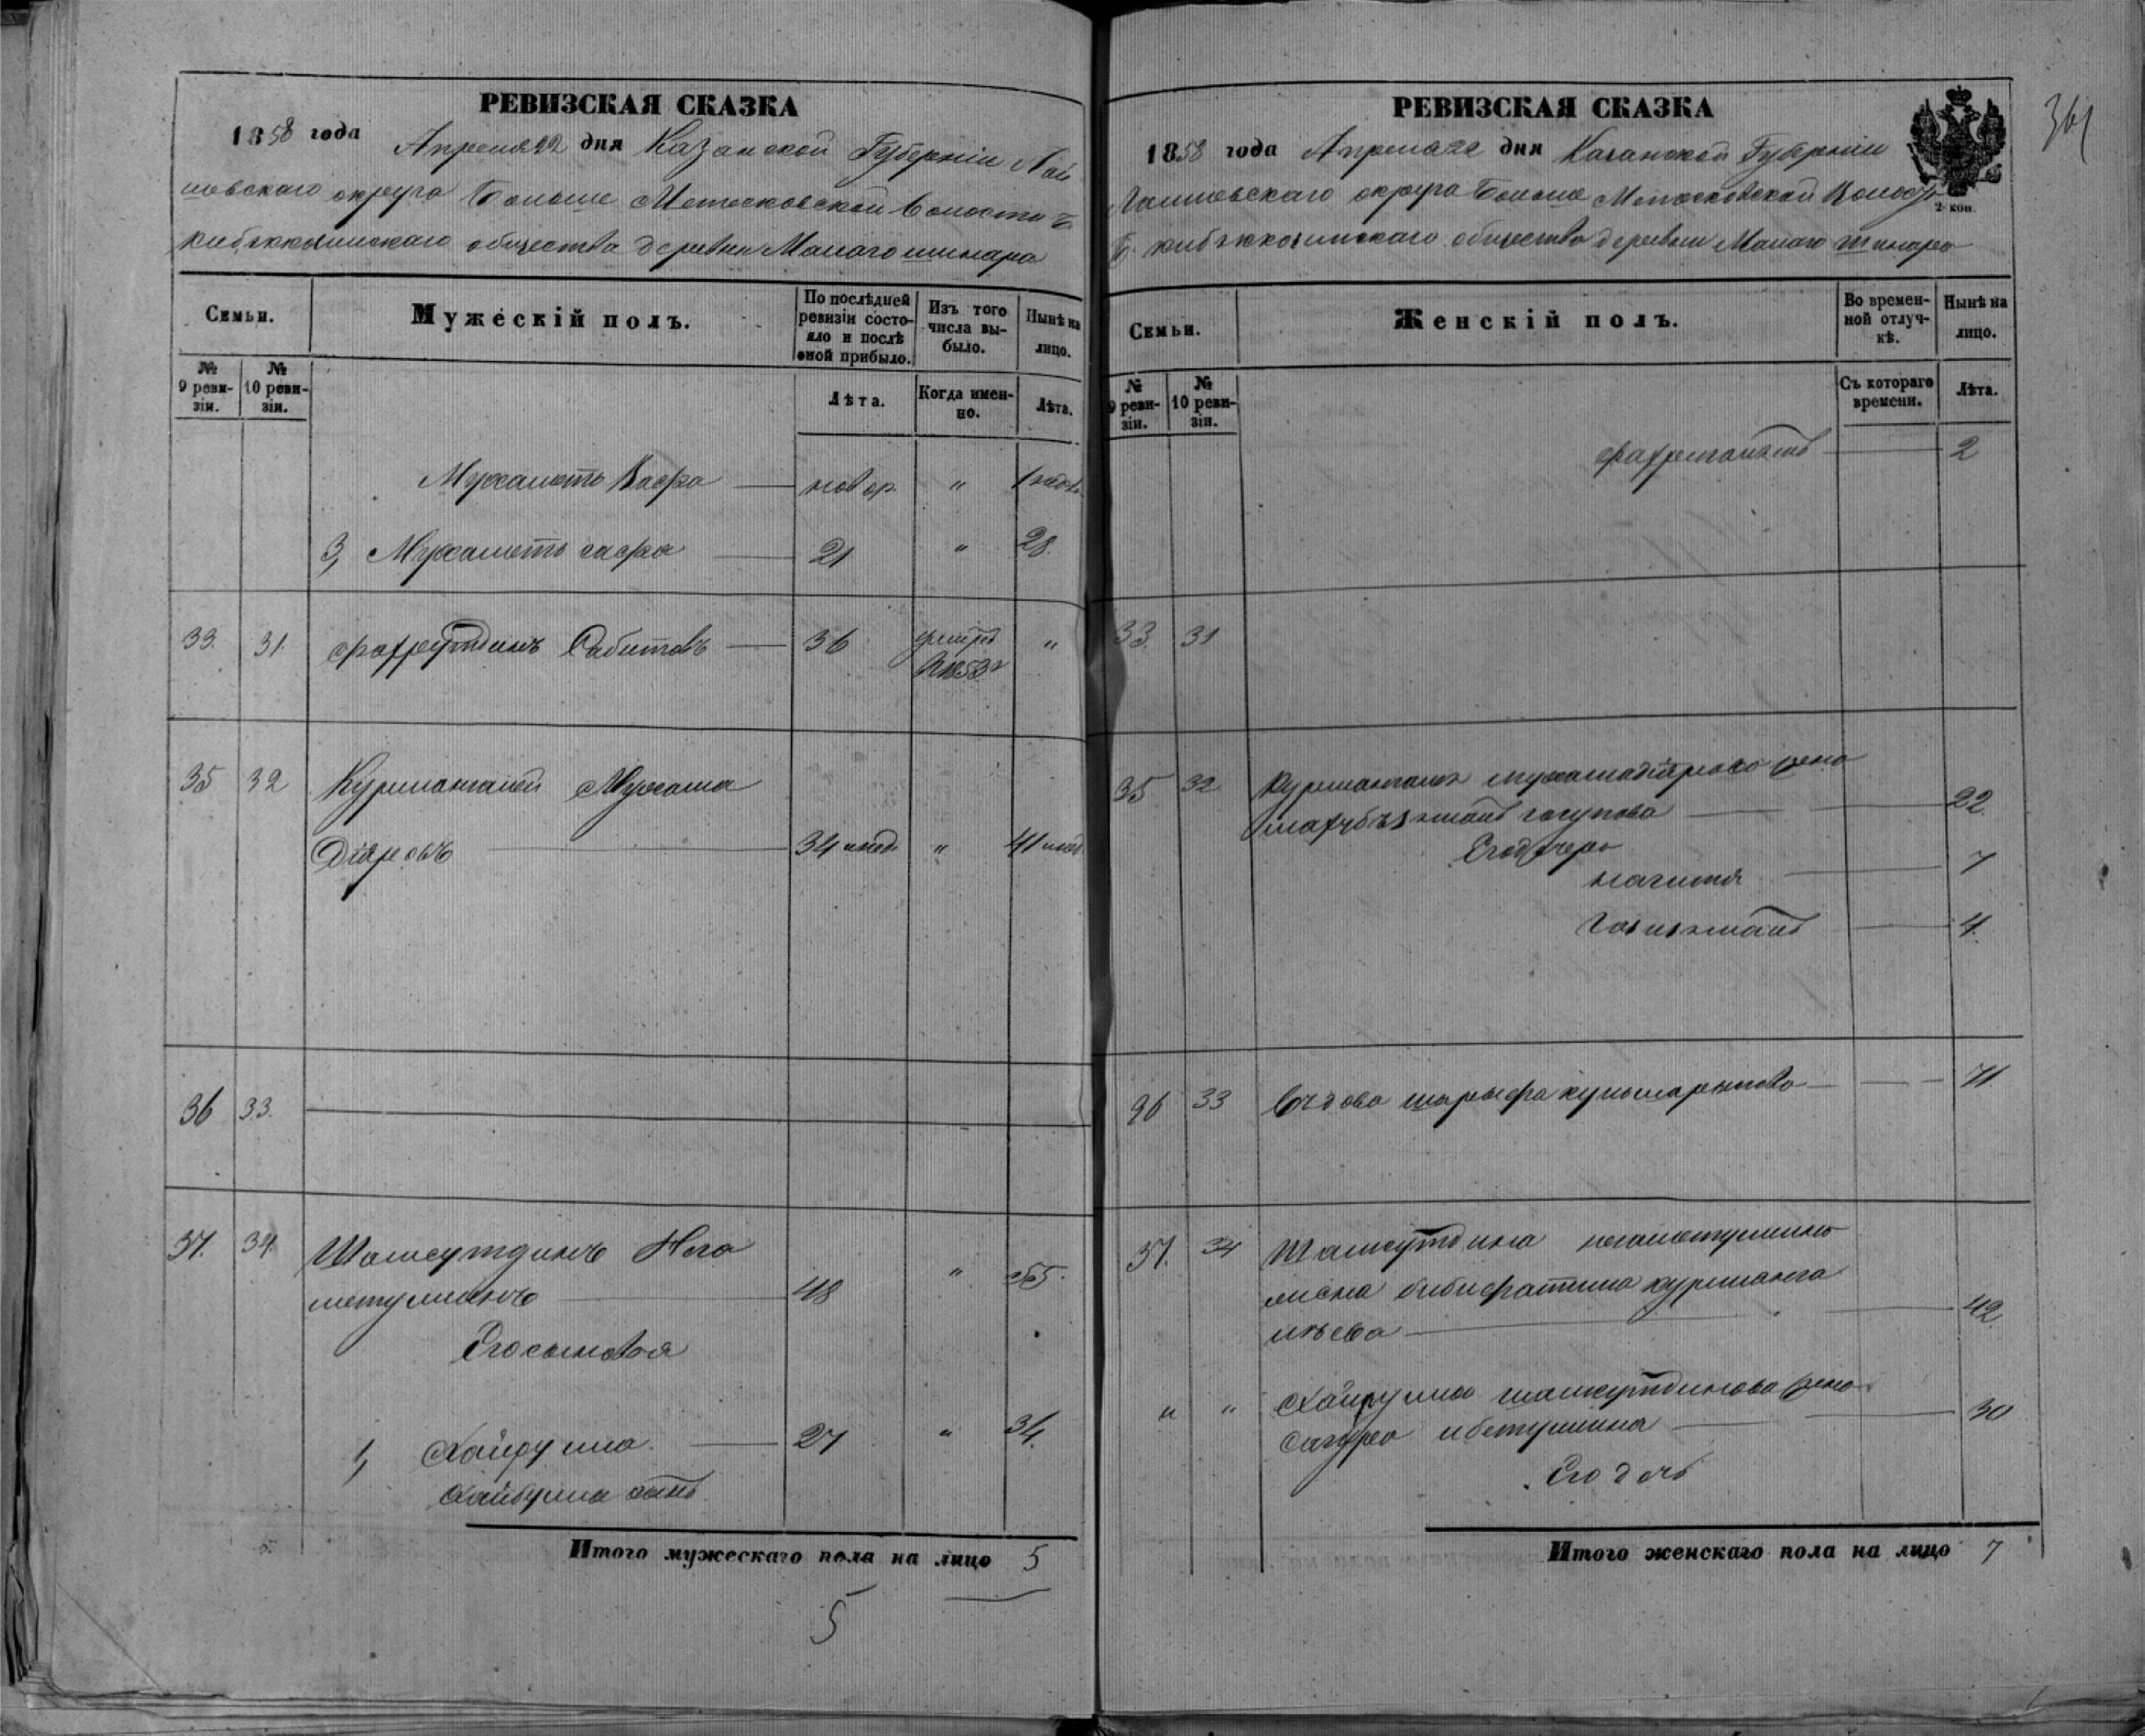 361
РЕВИЗСКАЯ СКАЗКА
1858 года Апреля 22 дня Казанской Губерніи Лаи
шевскаго округа Больше Метесковской Волости Б.
общества деревни Малаго шинара
Семьи.
Мужескій полъ.
По послѣдней ревизіи состояло и послѣ оной прибыло.
Изъ того числа выбыло.
Нынѣ на лицо.
№ 9 ревизіи.
№ 10 ревизіи.
Лѣта.
Когда именно.
Лѣта.
Мухаметъ Вафа — новор. " 1 нед.
3, Мухаметь сафа — 21 " 28.
33. 31. Фахрутдинъ Сабитовъ — 36 умерѣ в 1853 г "
35 32 Курмангалей Мухама
Діяровъ — 34 " 41
36 33.
37. 34. Шамсутдинъ Нега
метуллинъ — 48 " 55.
Его сыновья
1, Хайрулла — 27 " 34.
Хайбуллы сынъ
Итого мужескаго пола на лицо 5
5
РЕВИЗСКАЯ СКАЗКА
1858 года Апреля 22 дня Казанской Губерніи
Лаишевскаго округа Больше Метесковской Волости
Б. общества деревни Малаго шинара
2 коп.
Семьи.
Женскій полъ.
Во временной отлучкѣ.
Нынѣ на лицо.
№ 9 ревизіи.
№ 10 ревизіи.
Съ котораго времени.
Лѣта.
— 2
33. 31
35 32 Курмангалея мухамадіярова жена
— 22
Его дчери
нагимя — 7
— 4.
36 33 Вдова шарыфа — 71
37. 34 Шамсутдина негаметуллина
жена бибифатима курманга
лѣева — 42
" " Хайруллы шамсутдинова жена
сагура — 30
Его дочь
Итого женскаго пола на лицо 7